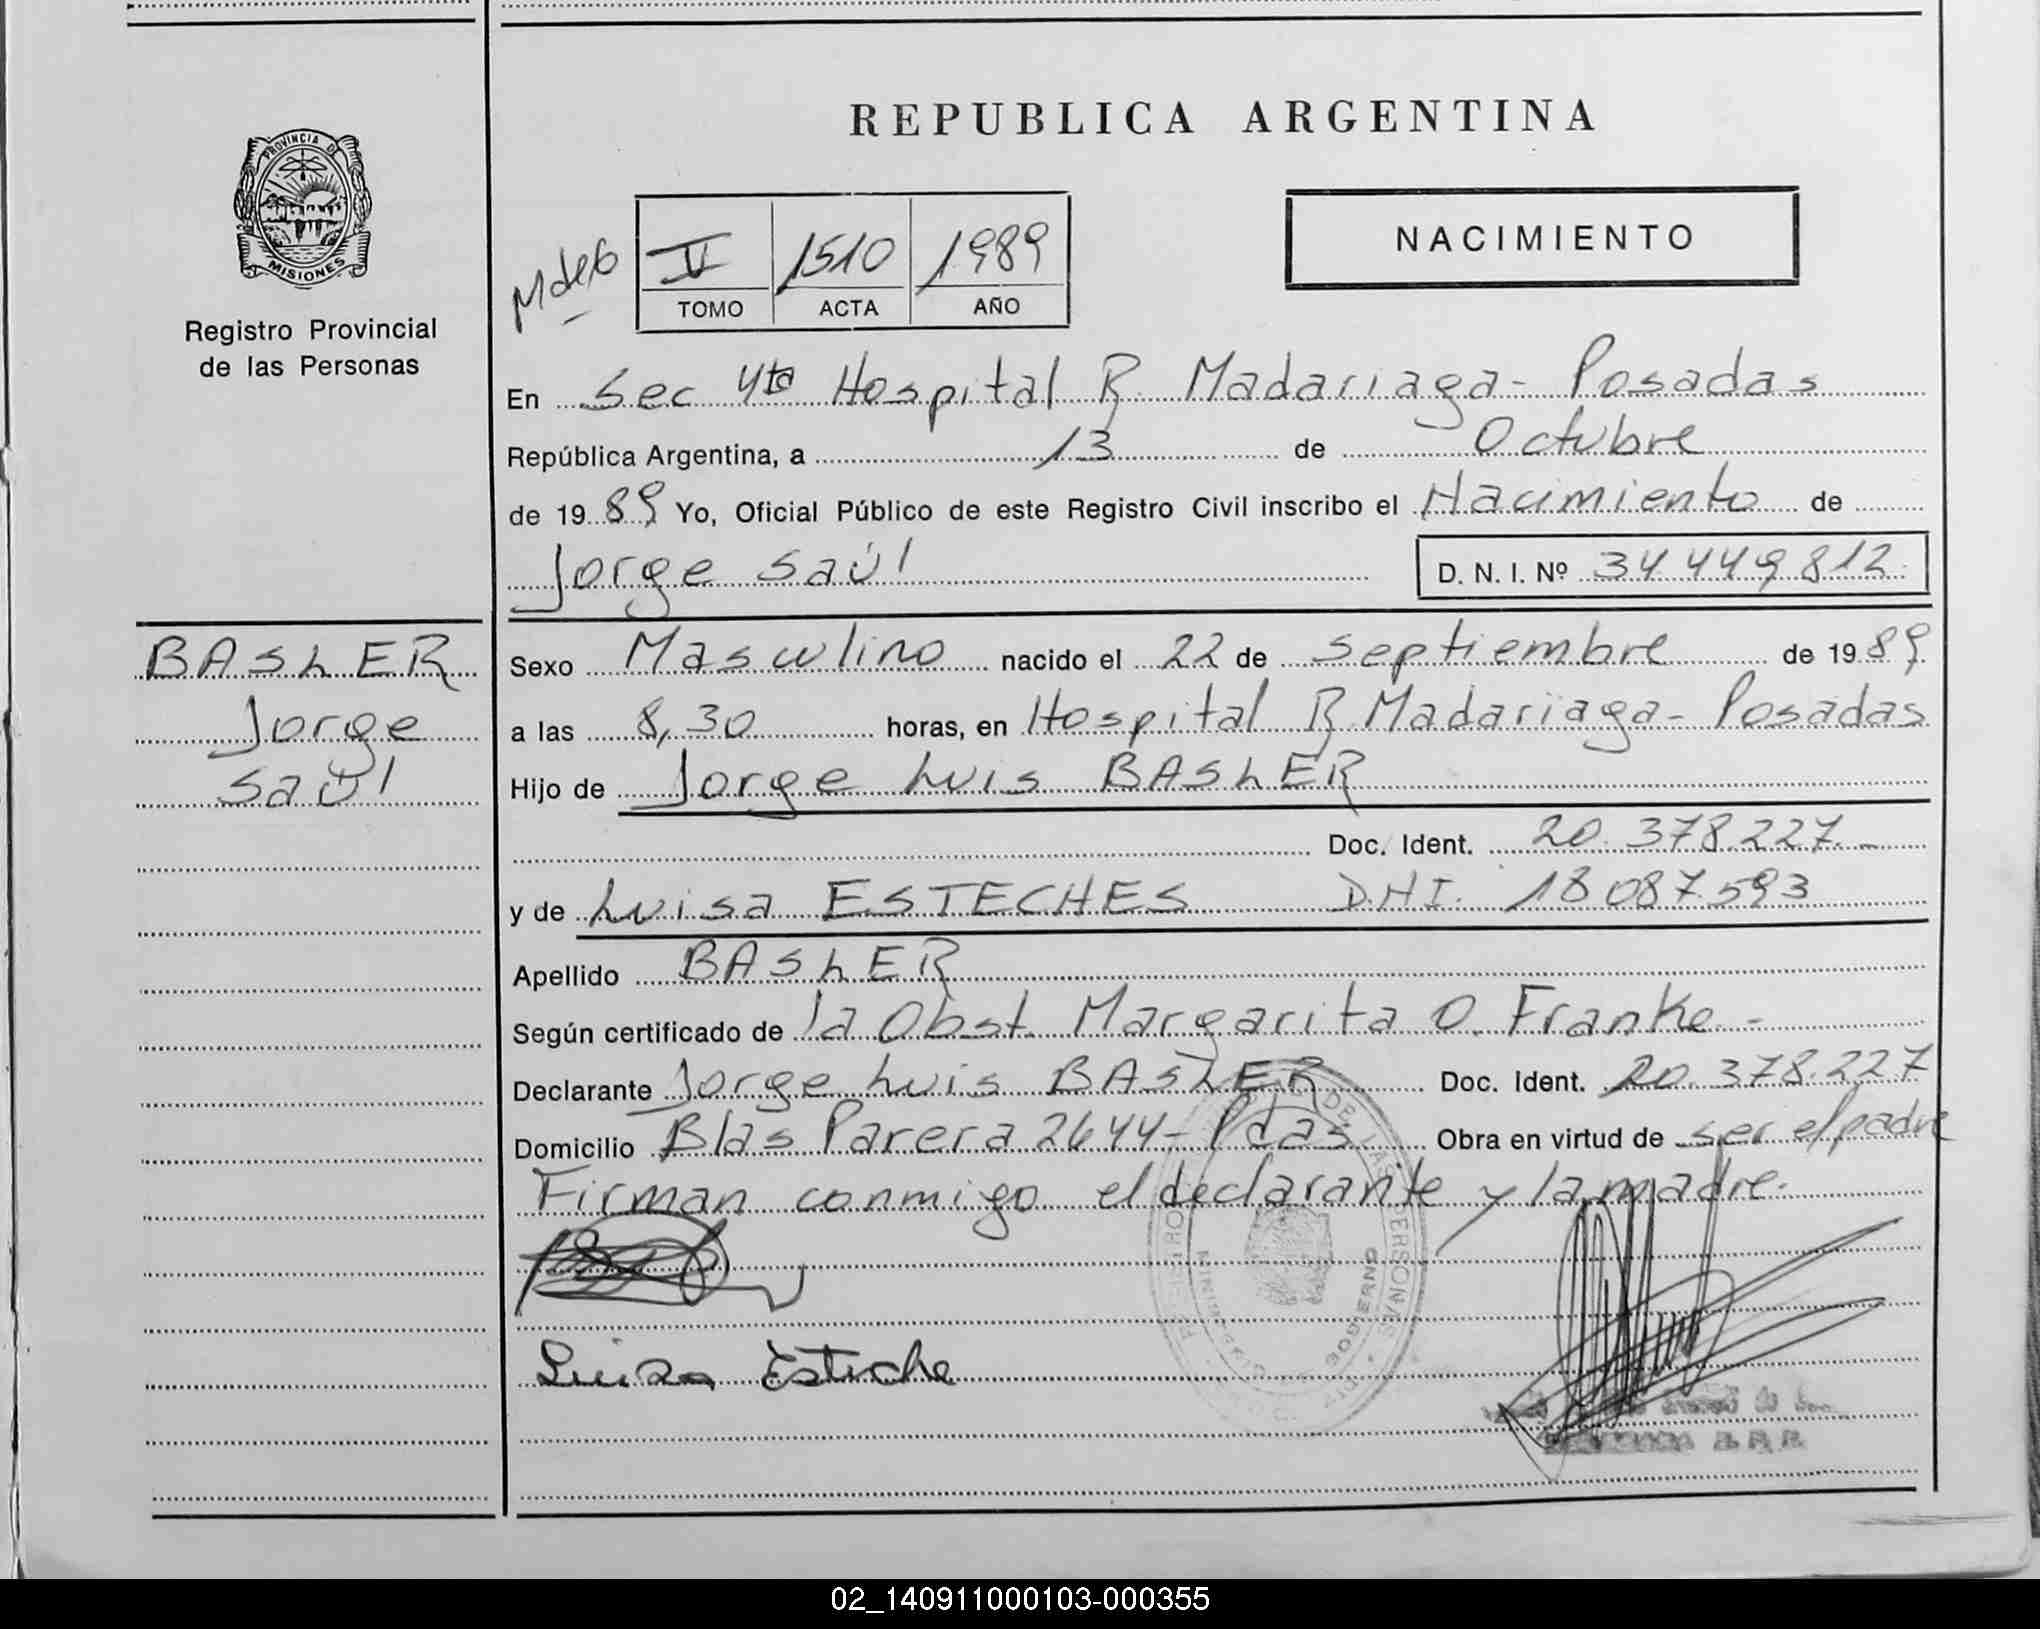 REPUBLICA ARGENTINA
PROVINCIA DE
MISIONES
Registro Provincial
de las Personas
NACIMIENTO
V 1510 1989
TOMO ACTA AÑO
En Sec 4ta Hospital R. Madariaga - Posadas
República Argentina, a 13 de Octubre
de 1989 Yo, Oficial Público de este Registro Civil inscribo el Nacimiento de
Jorge Saúl D. N. I. Nº 34 449 812
BASLER
Jorge
Saúl
Sexo Masculino nacido el 22 de Septiembre de 1989
a las 8,30 horas, en Hospital R. Madariaga - Posadas
Hijo de Jorge Luis BASLER
Doc. Ident. 20.378.227.-
y de Luisa ESTECHES D.N.I. 18 087.593
Apellido BASLER
Según certificado de la Obst. Margarita O. Franke.-
Declarante Jorge Luis BASLER Doc. Ident. 20.378.227
Domicilio Blas Parera 2644 - Pdas Obra en virtud de ser el padre
Firman conmigo el declarante y la madre.
Luisa Esteche
REGISTRO DE LAS PERSONAS
MINISTERIO GOBIERNO
02_140911000103-000355